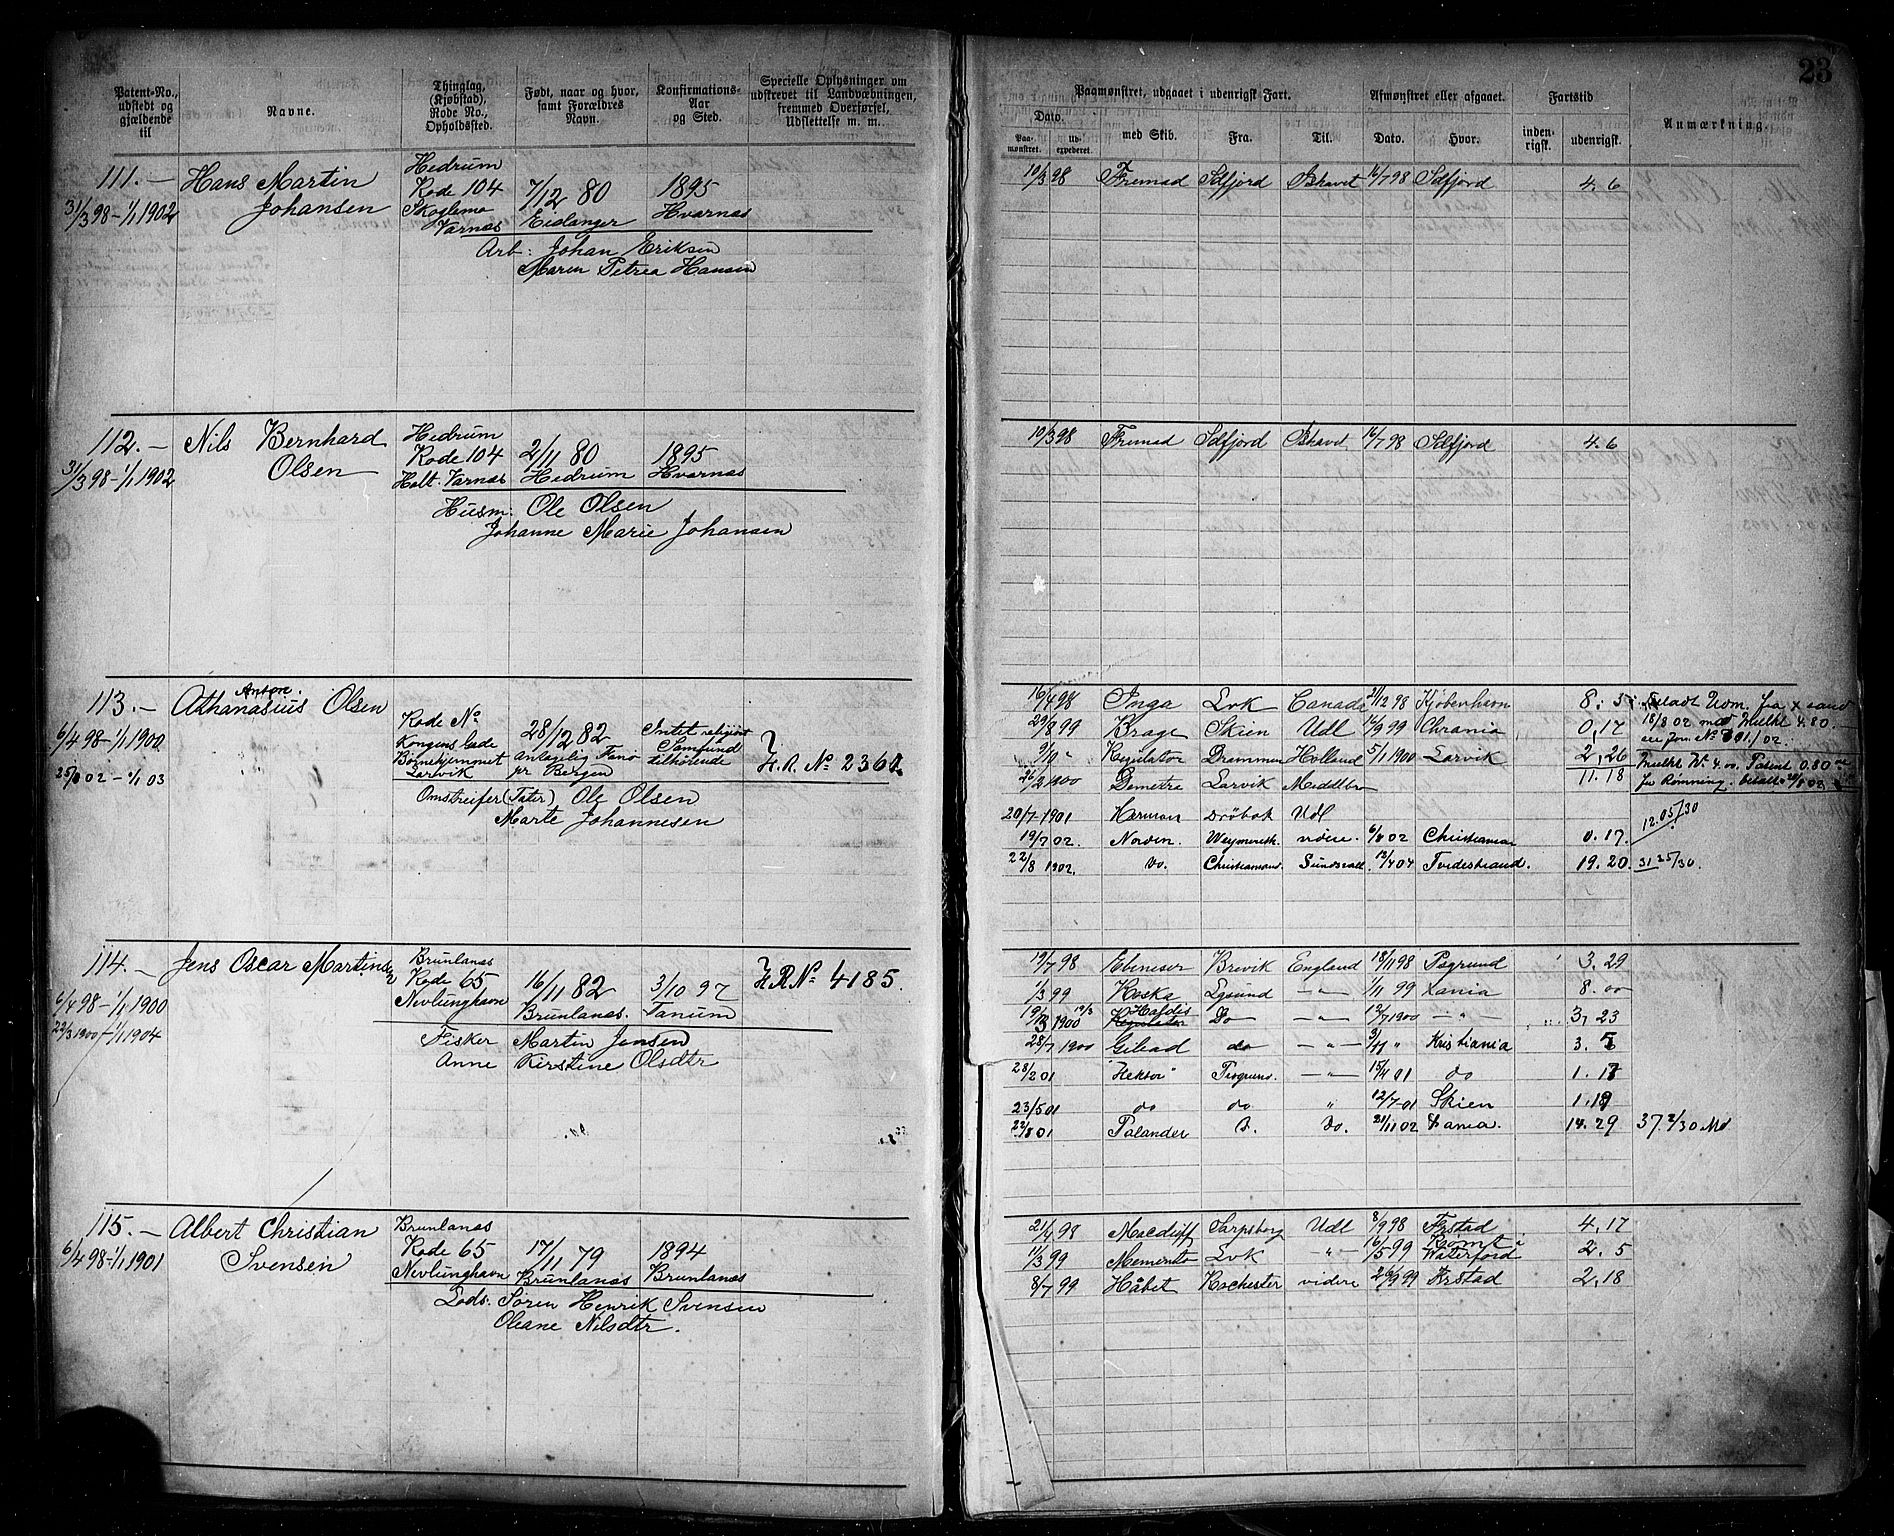 23
Patent-No., udstedt og gjældende til
Navne.
Thinglag, (Kjøbstad), Rode No., Opholdssted.
Født, naar og hvor, samt Forældres Navn.
Konfirmations-Aar og Sted.
Specielle Oplysninger om udskrevet til Landvæbningen, fremmed Overførsel, Udslettelse m. m.
Paamønstret, udgaaet i udenrigsk Fart.
Afmønstret eller afgaaet.
Fartstid
Anmærkning.
Dato.
Paa-mønstret.
Ud-expederet.
med Skib.
Fra.
Til.
Dato.
Hvor.
inden-rigsk.
udenrigsk.
111. — Hans Martin Johansen
31/3 98 – 1/1 1902
Hedrum
Rode 104
Skoglemo
Varnæs
7/12 80
Eidanger
1895
Hvarnæs
Arb: Johan Eriksen
Maren Petrea Hansen
10/3 98 Fremad Sdfjord Ishavet 16/7 98 Sdfjord 4. 6
112. — Nils Bernhard Olsen
31/3 98 – 1/1 1902
Hedrum
Rode 104
Holt. Varnæs
2/11 80
Hedrum
1895
Hvarnæs
Husm: Ole Olsen
Johanne Marie Johansen
10/3 98 Fremad Sdfjord Ishavet 16/7 98 Sdfjord 4. 6
113. — Athanasius Anton. Olsen
6/4 98 – 1/1 1900
25/8 02 – 1/1 03
Rode No
Kongens lade
Børnehjemmet
Larvik
28/12 82
antagelig Fanø
pr Bergen
Intet religiøst
Samfund
tilhørende
F. R. No 2361.
Omstreifer (Tater) Ole Olsen
Marte Johannesen
16/4 98 Inga Lvk Canada 21/12 98 Kjøbenhavn 8. 5
29/8 99 Brage Skien Udl 16/9 99 Chrania 0,17
9/10 " Regulator Drammen Holland 5/1 1900 Larvik 2,26
26/2 1900 Demetra Larvik Meddlhv 11.18
20/7 1901 Herman Drøbak Udl
19/7 02. Norden. 6/8 02 Christiania 0.17.
22/8 1902. Do. Christiansand. Sundsvall 13/4 04 Tvedestrand. 19.20.
18/8 02 med Mulkt 4.80.
Mulkt Kr 4.00. Patent 0.80
for Rømning. betalt
12.05/30
31 25/30.
114. — Jens Oscar Martinsen
6/4 98 – 1/1 1900
22/3 1900 – 1/1 1904
Brunlanæs
Rode 65
Nevlunghavn
16/11 82
Brunlanæs.
3/10 97
Tanum
F. R. No 4185.
Fisker Martin Jensen
Anne Kirstine Olsdtr
19/7 98 Ebeneser Brevik England 18/11 98 Psgrund 3. 29
1/3 99 Hoska Lgsund — " — 1/11 99 Xania 8. 00
Hafdis
19/3 1900 Regulator Do — " — 12/7 1900 — " — 3, 23
28/7 1900 Gilead do — " — 3/11 " Kristiania 3. 5
28/2 01 "Hektor" Prsgrund. — " — 15/4 01 do 1. 17
23/5 01 do do " 12/7 01 Skien 1.19
22/8 01 Palander D. Do. 21/11 02 Xania. 14.29 37.2/30 Md
115. — Albert Christian Svensen
6/4 98 – 1/1 1901
Brunlanæs
Rode 65
Nevlunghavn
17/11 79
Brunlanæs
1894
Brunlanæs
Lods. Søren Henrik Svensen
Oleane Nilsdtr.
21/4 98 Macduff Sarpsborg Udl 8/9 98 Frstad 4,17
11/3 99 Memento Lvk — " — 16/5 99 Rømt i Waterford 2. 5
8/7 99 Håbet Rochester videre 26/9 99 Frstad 2,18